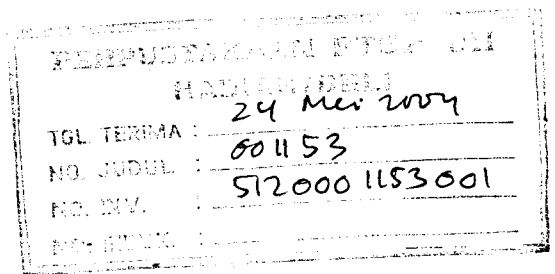 PERPUSTAKAAN FTSP UII
HADIAH/BELI
TGL. TERIMA : 24 Mei 2004
NO. JUDUL : 001153
NO. INV. : 512000 1153 001
NO. INDUK. :